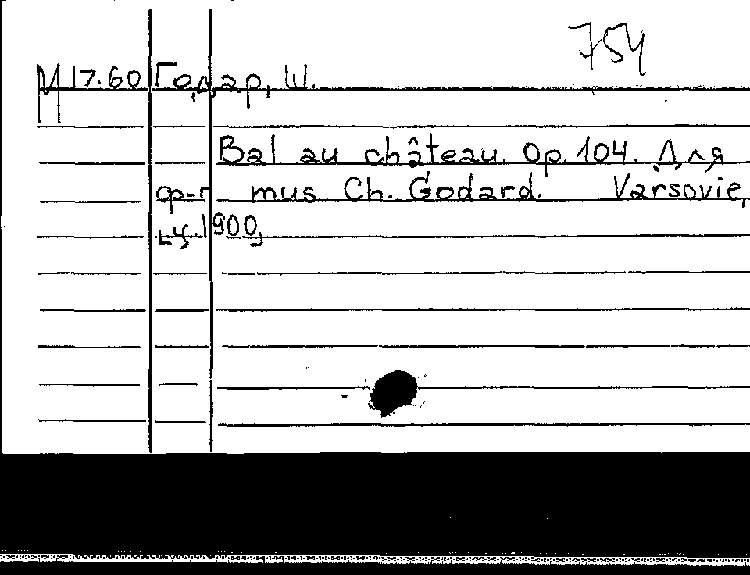 754
М 17.60 Годар, Ш.
Bal au château. Op. 104. Для
ф-п mus Ch. Godard. Varsovie,
ц. 1900,